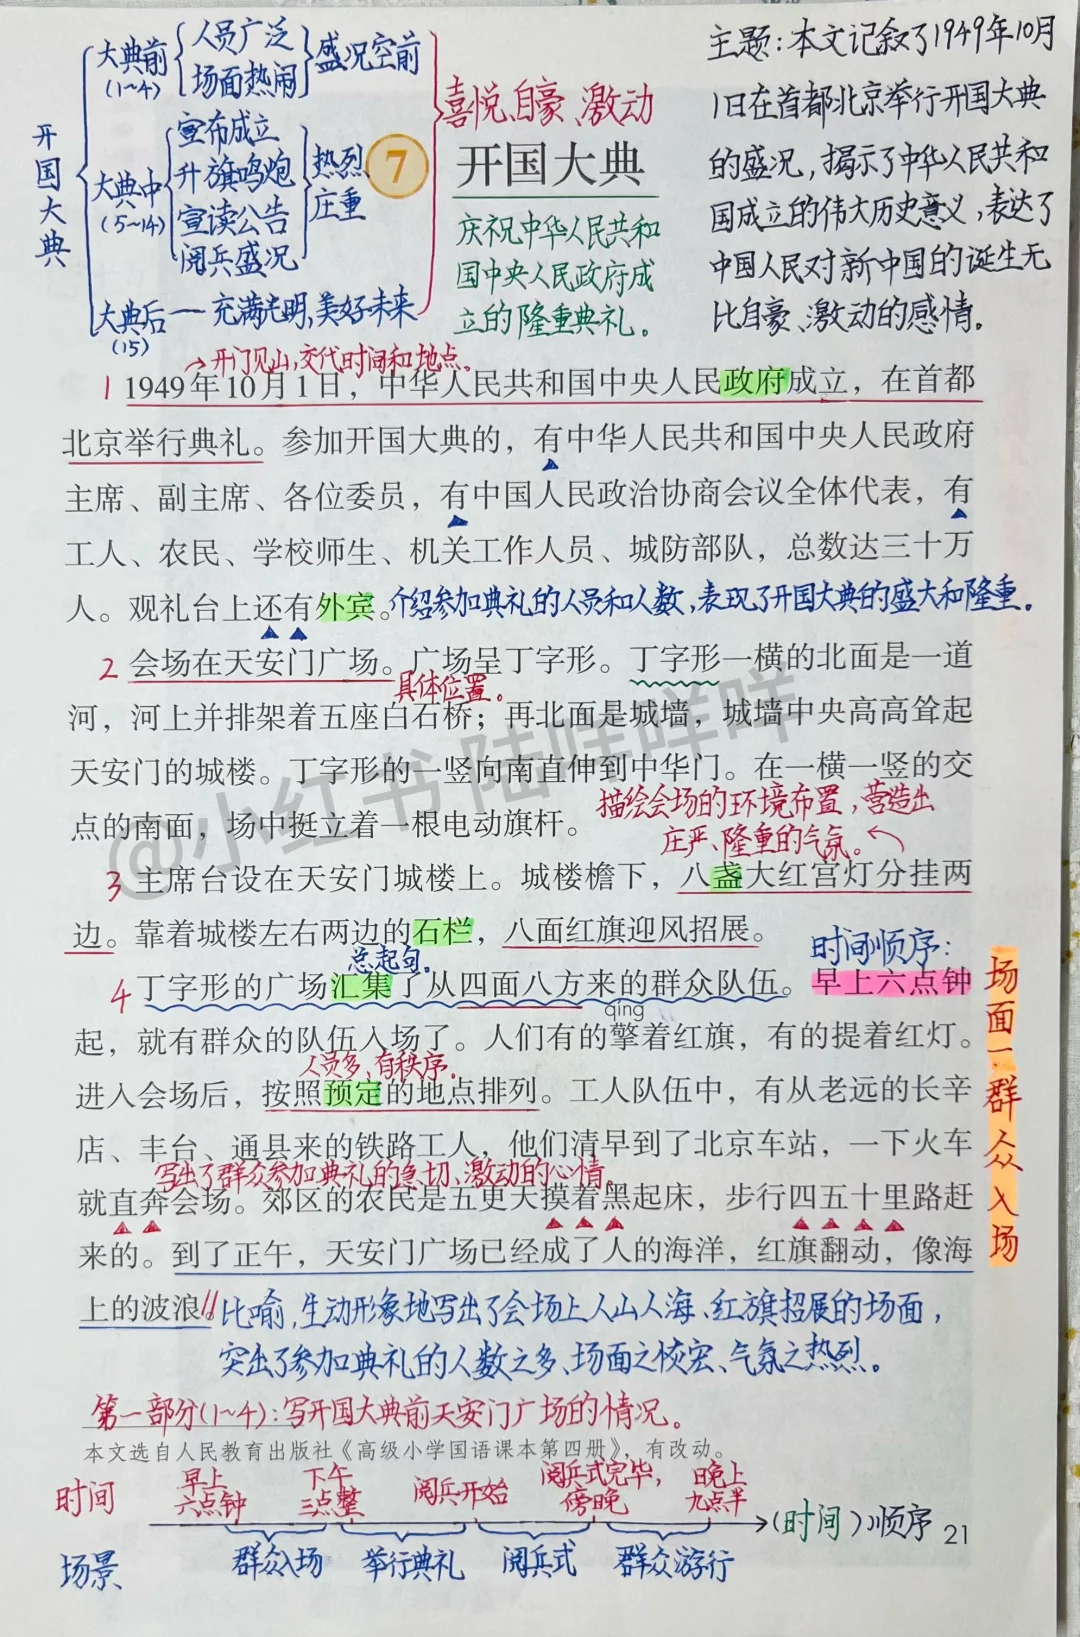 主题：本文记叙了1949年10月
1日在首都北京举行开国大典
的盛况，揭示了中华人民共和
国成立的伟大历史意义，表达了
中国人民对新中国的诞生无
比自豪、激动的感情。
开国大典
大典前
(1~4)
人员广泛
场面热闹
盛况空前
大典中
(5~14)
宣布成立
升旗鸣炮
宣读公告
阅兵盛况
热烈
庄重
大典后—充满光明,美好未来
(15)
喜悦、自豪、激动
7
开国大典
庆祝中华人民共和
国中央人民政府成
立的隆重典礼。
→开门见山,交代时间和地点。
1 1949年10月1日，中华人民共和国中央人民政府成立，在首都
北京举行典礼。参加开国大典的，有中华人民共和国中央人民政府
主席、副主席、各位委员，有中国人民政治协商会议全体代表，有
工人、农民、学校师生、机关工作人员、城防部队，总数达三十万
人。观礼台上还有外宾。介绍参加典礼的人员和人数,表现了开国大典的盛大和隆重。
2 会场在天安门广场。广场呈丁字形。丁字形一横的北面是一道
具体位置。
河，河上并排架着五座白石桥；再北面是城墙，城墙中央高高耸起
天安门的城楼。丁字形的一竖向南直伸到中华门。在一横一竖的交
描绘会场的环境布置,营造出
点的南面，场中挺立着一根电动旗杆。
庄严、隆重的气氛。
3 主席台设在天安门城楼上。城楼檐下，八盏大红宫灯分挂两
边。靠着城楼左右两边的石栏，八面红旗迎风招展。
总起句。
时间顺序:
4 丁字形的广场汇集了从四面八方来的群众队伍。早上六点钟
qíng
起，就有群众的队伍入场了。人们有的擎着红旗，有的提着红灯。
人员多、有秩序。
进入会场后，按照预定的地点排列。工人队伍中，有从老远的长辛
店、丰台、通县来的铁路工人，他们清早到了北京车站，一下火车
写出了群众参加典礼的急切、激动的心情。
就直奔会场。郊区的农民是五更天摸着黑起床，步行四五十里路赶
来的。到了正午，天安门广场已经成了人的海洋，红旗翻动，像海
上的波浪。比喻,生动形象地写出了会场上人山人海、红旗招展的场面,
突出了参加典礼的人数之多、场面之恢宏、气氛之热烈。
场面一:群众入场
第一部分(1~4):写开国大典前天安门广场的情况。
本文选自人民教育出版社《高级小学国语课本第四册》，有改动。
时间
早上
六点钟
下午
三点整
阅兵开始
阅兵式完毕,
傍晚
晚上
九点半
(时间)顺序
场景
群众入场
举行典礼
阅兵式
群众游行
21
@小红书 陆咩咩咩